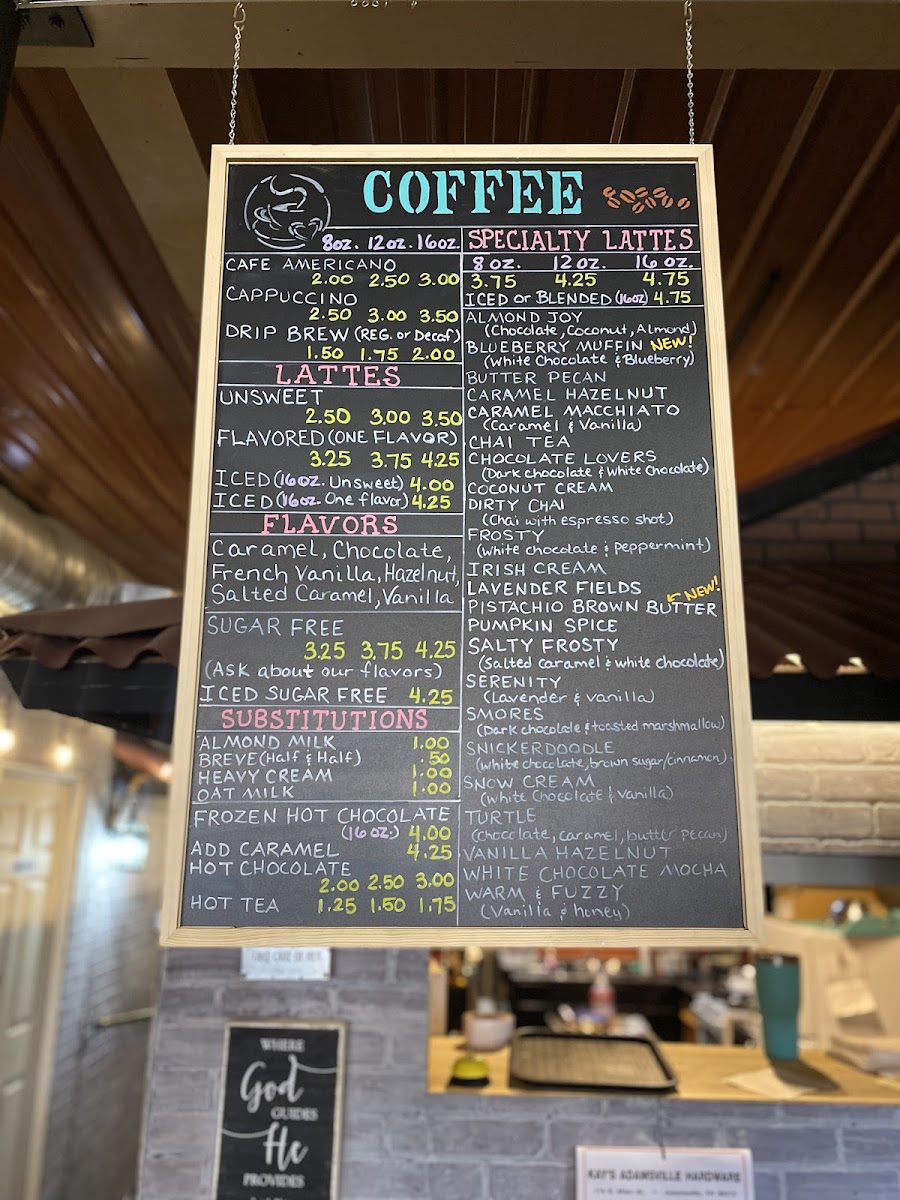 COFFEE
8oz. 12oz. 16oz.
CAFE AMERICANO
2.00 2.50 3.00
CAPPUCCINO
2.50 3.00 3.50
DRIP BREW (REG. or Decaf)
1.50 1.75 2.00
LATTES
UNSWEET
2.50 3.00 3.50
FLAVORED (ONE FLAVOR)
3.25 3.75 4.25
ICED (16oz. Unsweet) 4.00
ICED (16oz. One flavor) 4.25
FLAVORS
Caramel, Chocolate,
French Vanilla, Hazelnut,
Salted Caramel, Vanilla
SUGAR FREE
3.25 3.75 4.25
(Ask about our flavors)
ICED SUGAR FREE 4.25
SUBSTITUTIONS
ALMOND MILK 1.00
BREVE (Half & Half) .50
HEAVY CREAM 1.00
OAT MILK 1.00
FROZEN HOT CHOCOLATE
(16 oz.) 4.00
ADD CARAMEL 4.25
HOT CHOCOLATE
2.00 2.50 3.00
HOT TEA 1.25 1.50 1.75
SPECIALTY LATTES
8 oz. 12 oz. 16 oz.
3.75 4.25 4.75
ICED or BLENDED (16oz) 4.75
ALMOND JOY
(Chocolate, Coconut, Almond)
BLUEBERRY MUFFIN NEW!
(White Chocolate & Blueberry)
BUTTER PECAN
CARAMEL HAZELNUT
CARAMEL MACCHIATO
(Caramel & Vanilla)
CHAI TEA
CHOCOLATE LOVERS
(Dark chocolate & White Chocolate)
COCONUT CREAM
DIRTY CHAI
(Chai with espresso shot)
FROSTY
(White chocolate & peppermint)
IRISH CREAM
LAVENDER FIELDS
NEW!
PISTACHIO BROWN BUTTER
PUMPKIN SPICE
SALTY FROSTY
(Salted caramel & white chocolate)
SERENITY
(Lavender & vanilla)
SMORES
(Dark chocolate & toasted marshmallow)
SNICKERDOODLE
(White chocolate, brown sugar/cinnamon)
SNOW CREAM
(White Chocolate & Vanilla)
TURTLE
(Chocolate, caramel, butter pecan)
VANILLA HAZELNUT
WHITE CHOCOLATE MOCHA
WARM & FUZZY
(Vanilla & honey)
WHERE
God
GUIDES
He
PROVIDES
KAY'S ADAMSVILLE HARDWARE